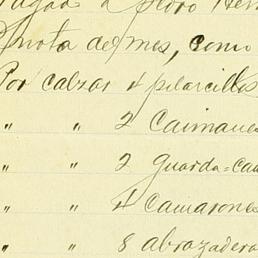 Pedro
nota de mes, como
Por calzar 4 pilarcillos
" " 2 Caimanes
" " 2 guarda-ca
" " 4 Camarones
" " 8 abrazadera